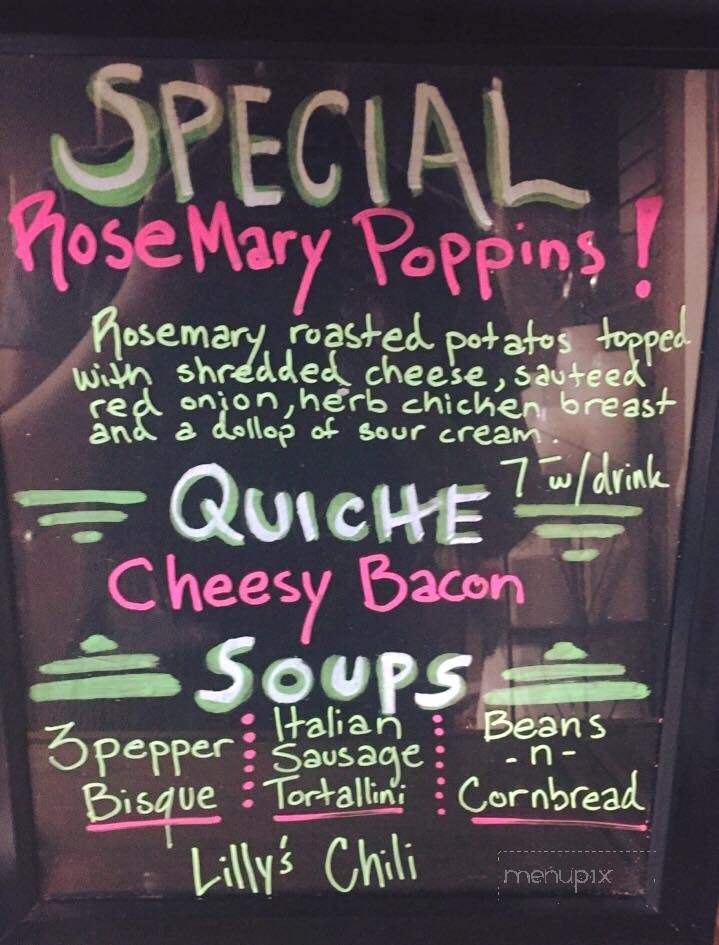 SPECIAL
RoseMary Poppins!
Rosemary roasted potatos topped
with shredded cheese, sauteed
red onion, herb chicken breast
and a dollop of sour cream.
7 w/drink
QUICHE
Cheesy Bacon
SOUPS
3 pepper
Bisque
Italian
Sausage
Tortallini
Beans
-n-
Cornbread
Lilly's Chili
menupix